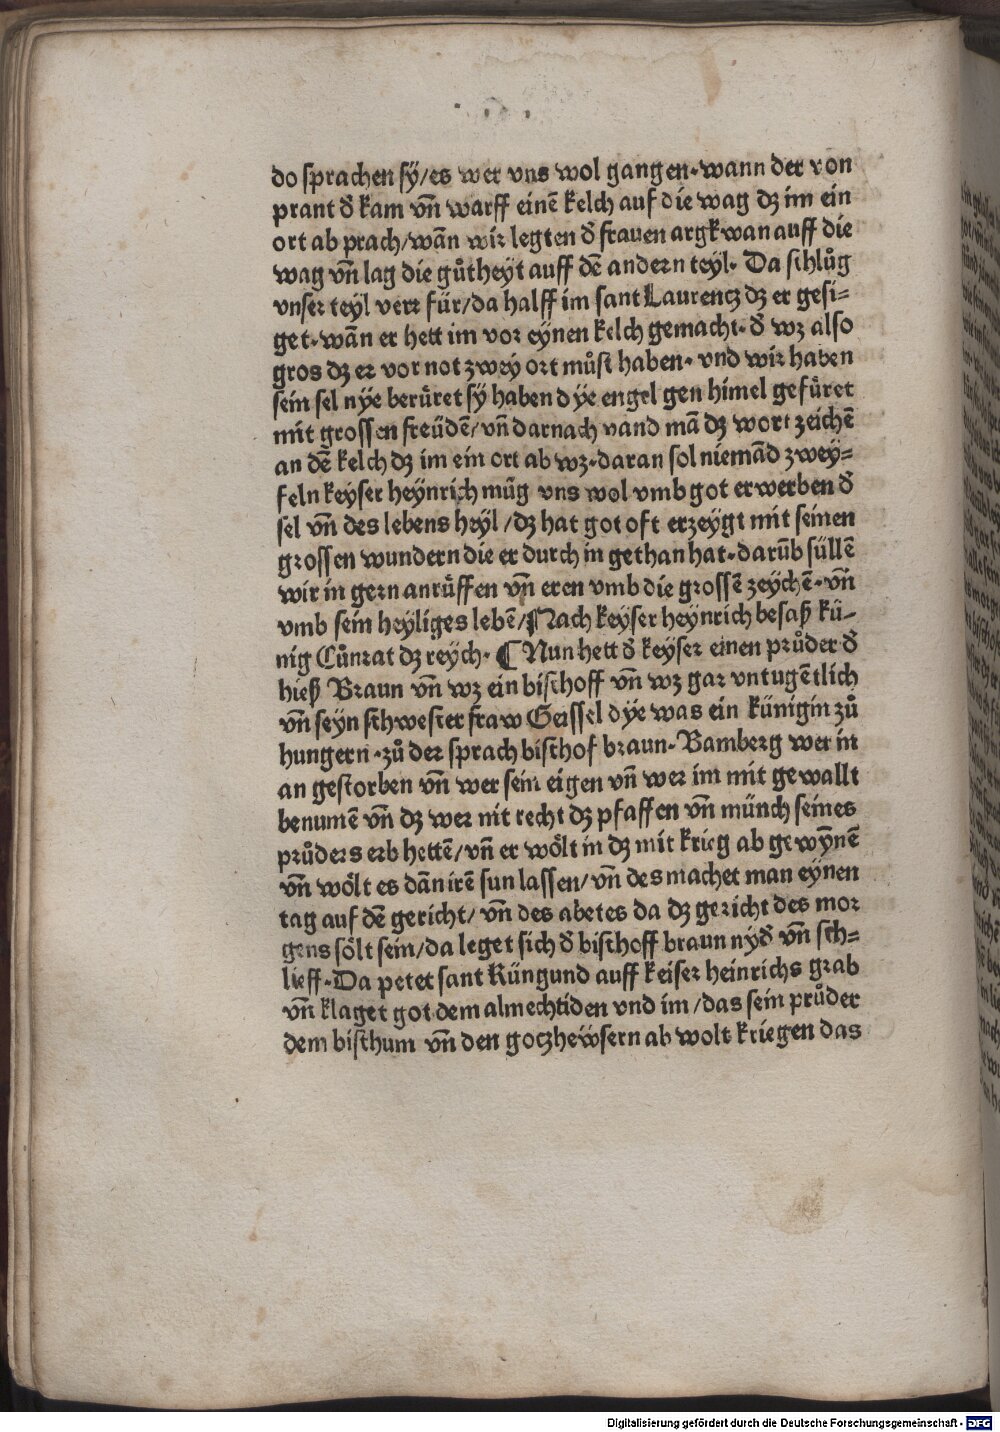 do sprachen sÿ/es wer vns wol gangen·wann der von
prant đ kam vn̄ warff einē kelch auf die wag dʒ im ein
ort ab prach/wān wir legten đ frauen argkwan auff die
wag vn̄ lag die gůtheyt auff dē andern teyl· Da schlůg
vnser teyl verr für/da halff im sant Laurencz dʒ er gesi-
get·wān er hett im vor eynen kelch gemacht·đ wʒ also
gros dʒ er vor not zwey ort můst haben· vnd wir haben
sein sel nye berůret sÿ haben dye engel gen himel gefůret
mit grossen freüdē/vn̄ darnach vand mā dʒ wort zeichē
an dē kelch dʒ im ein ort ab wʒ·daran sol niemād zwey-
feln keyser heynrich můg vns wol vmb got erwerben đ
sel vn̄ des lebens heyl/dʒ hat got oft erzeygt mit seinen
grossen wundern die er durch in gethan hat·darūb süllē
wir in gern anrůffen vn̄ eren vmb die grossē zeychē·vn̄
vmb sein heyliges lebē/Nach keyser heynrich besaß kü-
nig Cůnrat dʒ reych· ¶ Nun hett đ keyser einen průder đ
hieß Braun vn̄ wʒ ein bischoff vn̄ wʒ gar vntugētlich
vn̄ seyn schwester fraw Geissel dye was ein künigin zů
hungern·zů der sprach bischof braun·Bamberg wer in
an gestorben vn̄ wer sein eigen vn̄ wer im mit gewallt
benumē vn̄ dʒ wer nit recht dʒ pfaffen vn̄ münch seines
průders erb hettē/vn̄ er wölt in dʒ mit krieg ab gewȳnē
vn̄ wölt es dān irē sun lassen/vn̄ des machet man eynen
tag auf dē gericht/vn̄ des abetes da dʒ gericht des mor
gens sölt sein/da leget sich đ bischoff braun nyđ vn̄ sch-
lieff·Da petet sant Küngund auff keiser heinrichs grab
vn̄ klaget got dem almechtiden vnd im/das sein průder
dem bisthum vn̄ den goczhewsern ab wolt kriegen das
Digitalisierung gefördert durch die Deutsche Forschungsgemeinschaft - DFG